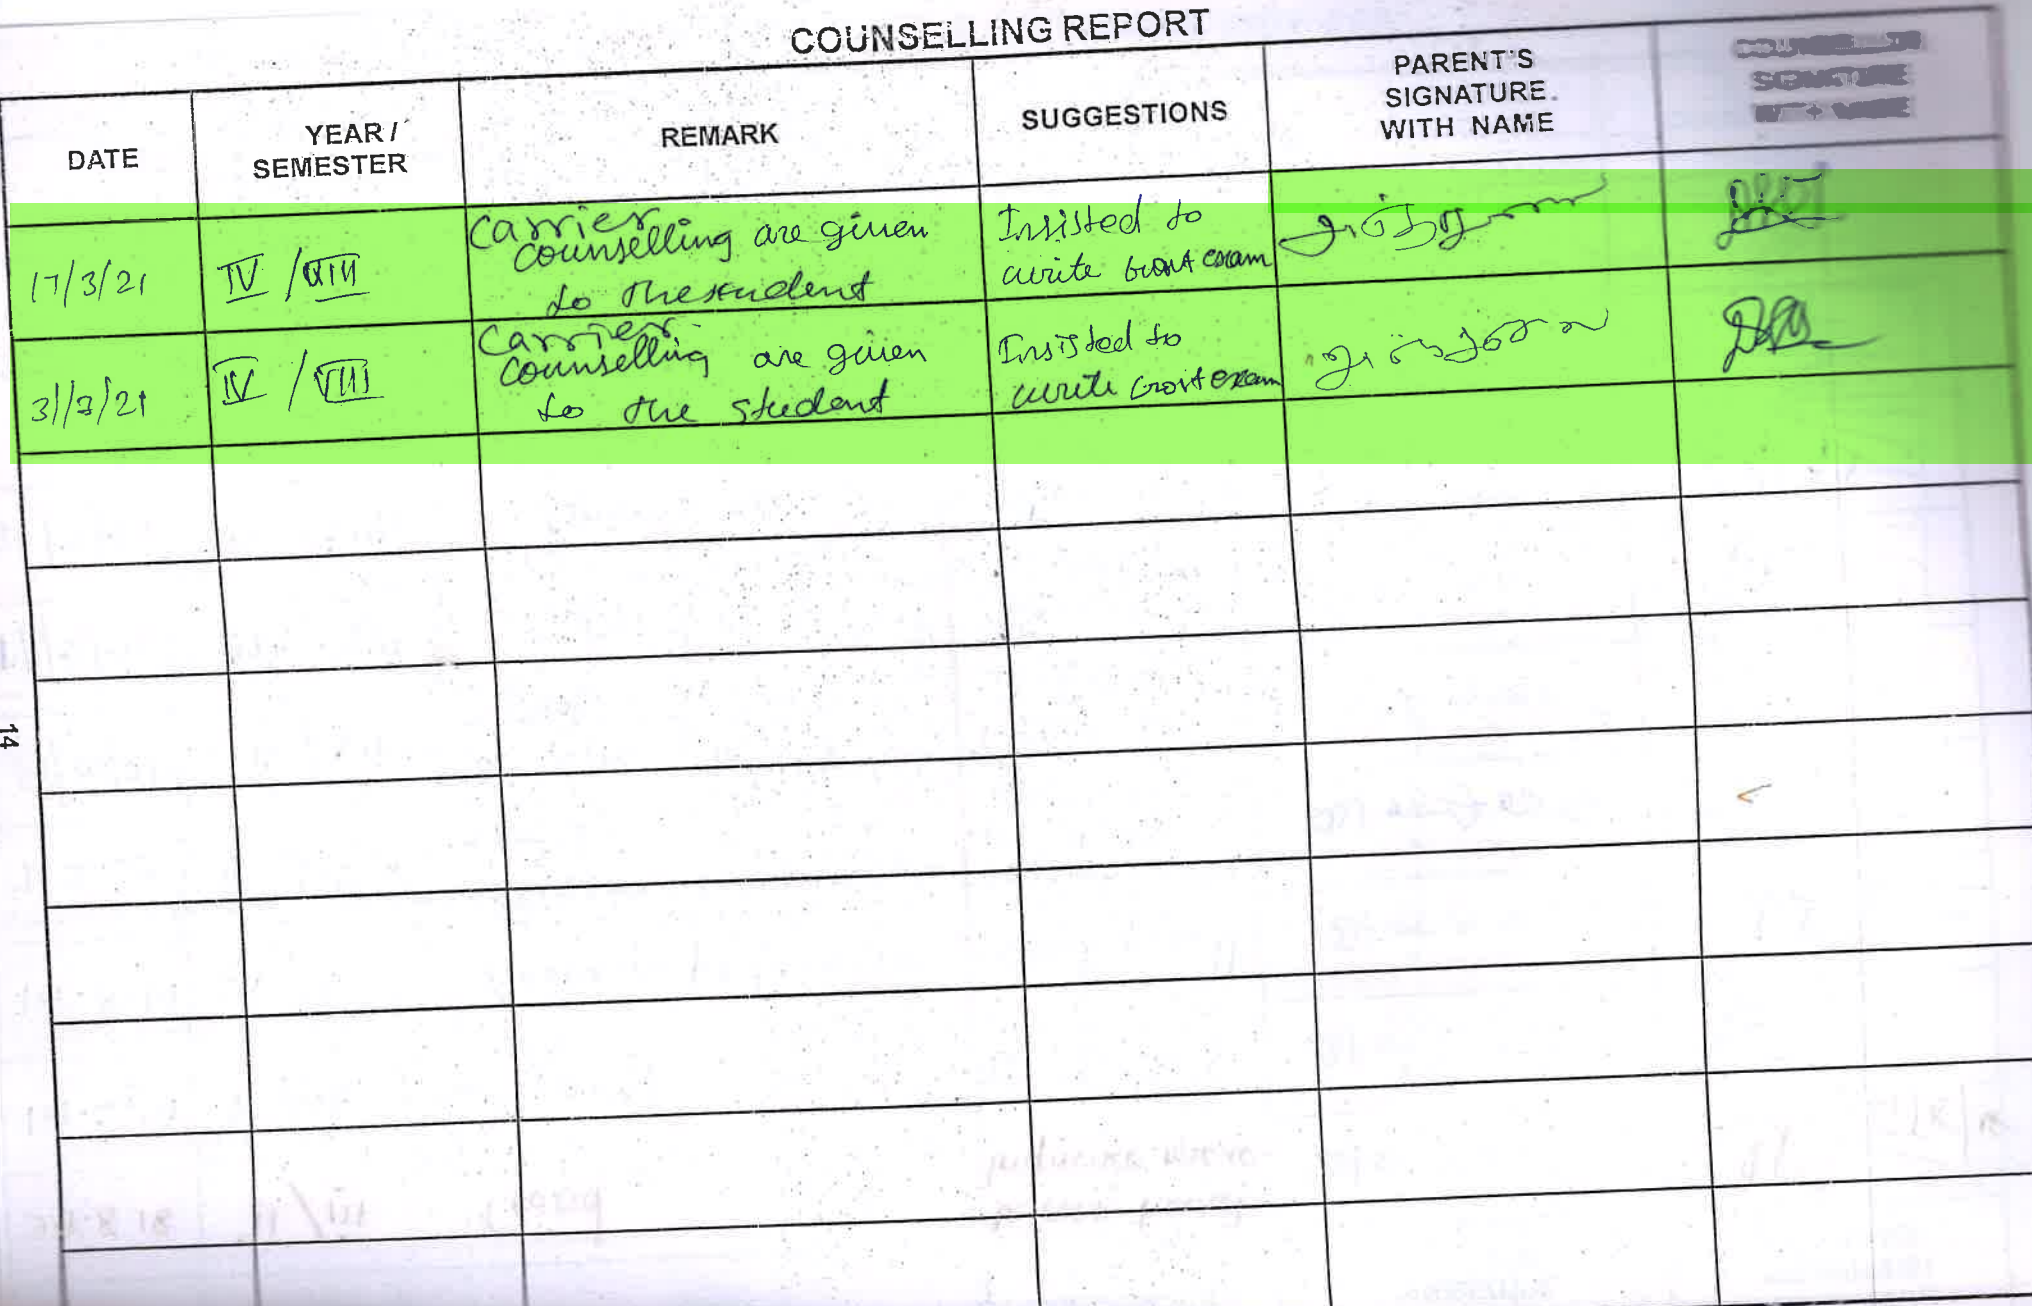 COUNSELLING REPORT
DATE
YEAR /
SEMESTER
REMARK
SUGGESTIONS
PARENT'S
SIGNATURE
WITH NAME
17/3/21
IV / VIII
Carrier
counselling are given
to the student
Insisted to
write exam
31/3/21
IV / VIII
Carrier
counselling are given
to the student
Insisted to
write exam
14